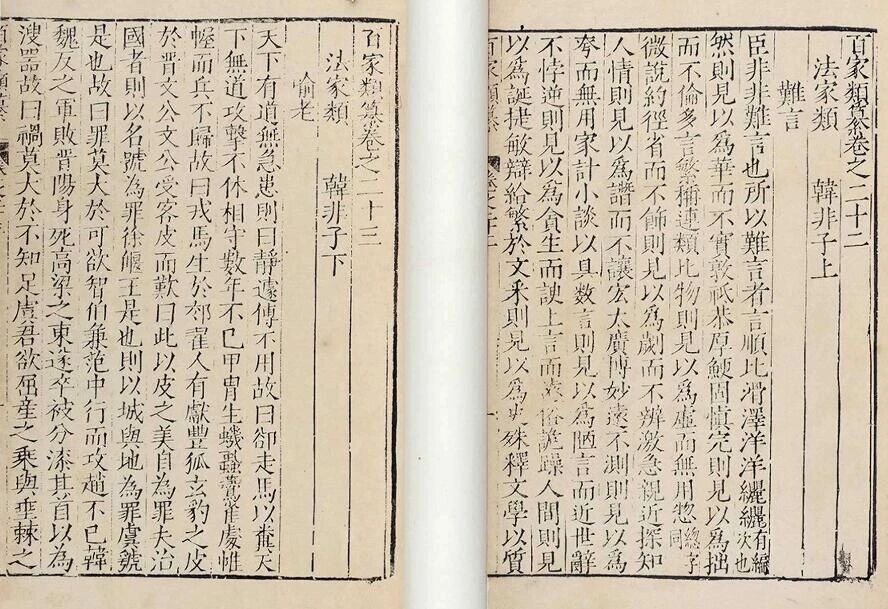 百家類纂卷之二十二
法家類　韓非子上
難言
臣非非難言也所以難言者言順比滑澤洋洋纚纚有編次也
然則見以爲華而不實敦祇恭厚鯁固慎完則見以爲拙
而不倫多言繁稱連類比物則見以爲虛而無用惣總字同
微說約徑省而不飾則見以爲劌而不辨激急親近探知
人情則見以爲譖而不讓宏大廣博妙遠不測則見以爲
夸而無用家計小談以具數言則見以爲陋言而近世辭
不悖逆則見以爲貪生而諛上言而遠俗詭躁人間則見
以爲誕捷敏辯給繁於文采則見以爲史殊釋文學以質
百家類纂
百家類纂卷之二十三
法家類　韓非子下
喻老
天下有道無急患則曰靜遽傳不用故曰卻走馬以糞天
下無道攻擊不休相守數年不已甲冑生蟣蝨鷰雀處帷
幄而兵不歸故曰戎馬生於郊翟人有獻豐狐玄豹之皮
於晉文公文公受客皮而歎曰此以皮之美自為罪夫治
國者則以名號為罪徐偃王是也則以城與地為罪虞虢
是也故曰罪莫大於可欲智伯兼范中行而攻趙不已韓
魏反之軍敗晉陽身死高梁之東遂卒被分漆其首以為
溲器故曰禍莫大於不知足虞君欲屈産之乘與垂棘之